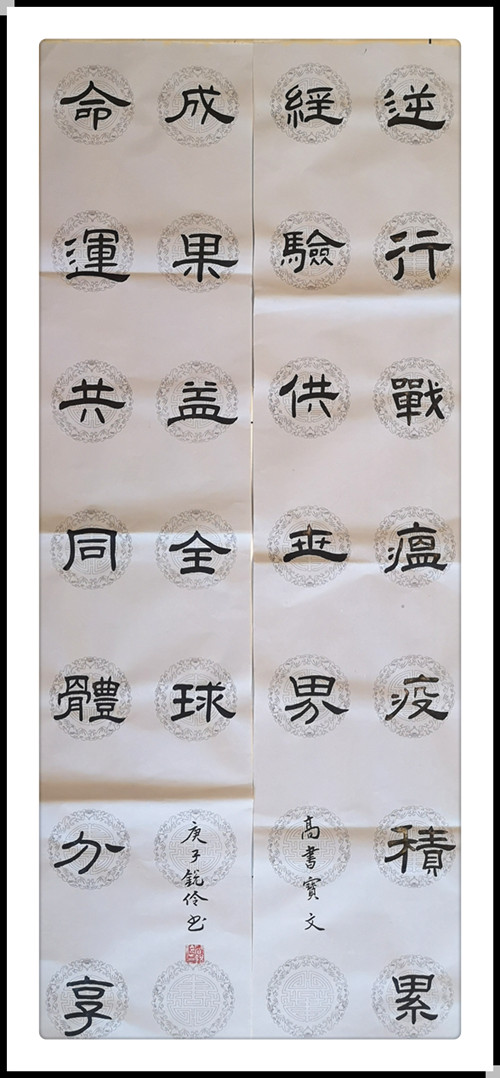 逆行戰瘟疫積累
經驗供世界
高書寶文
成果益全球
庚子銳伶书
命運共同體分享